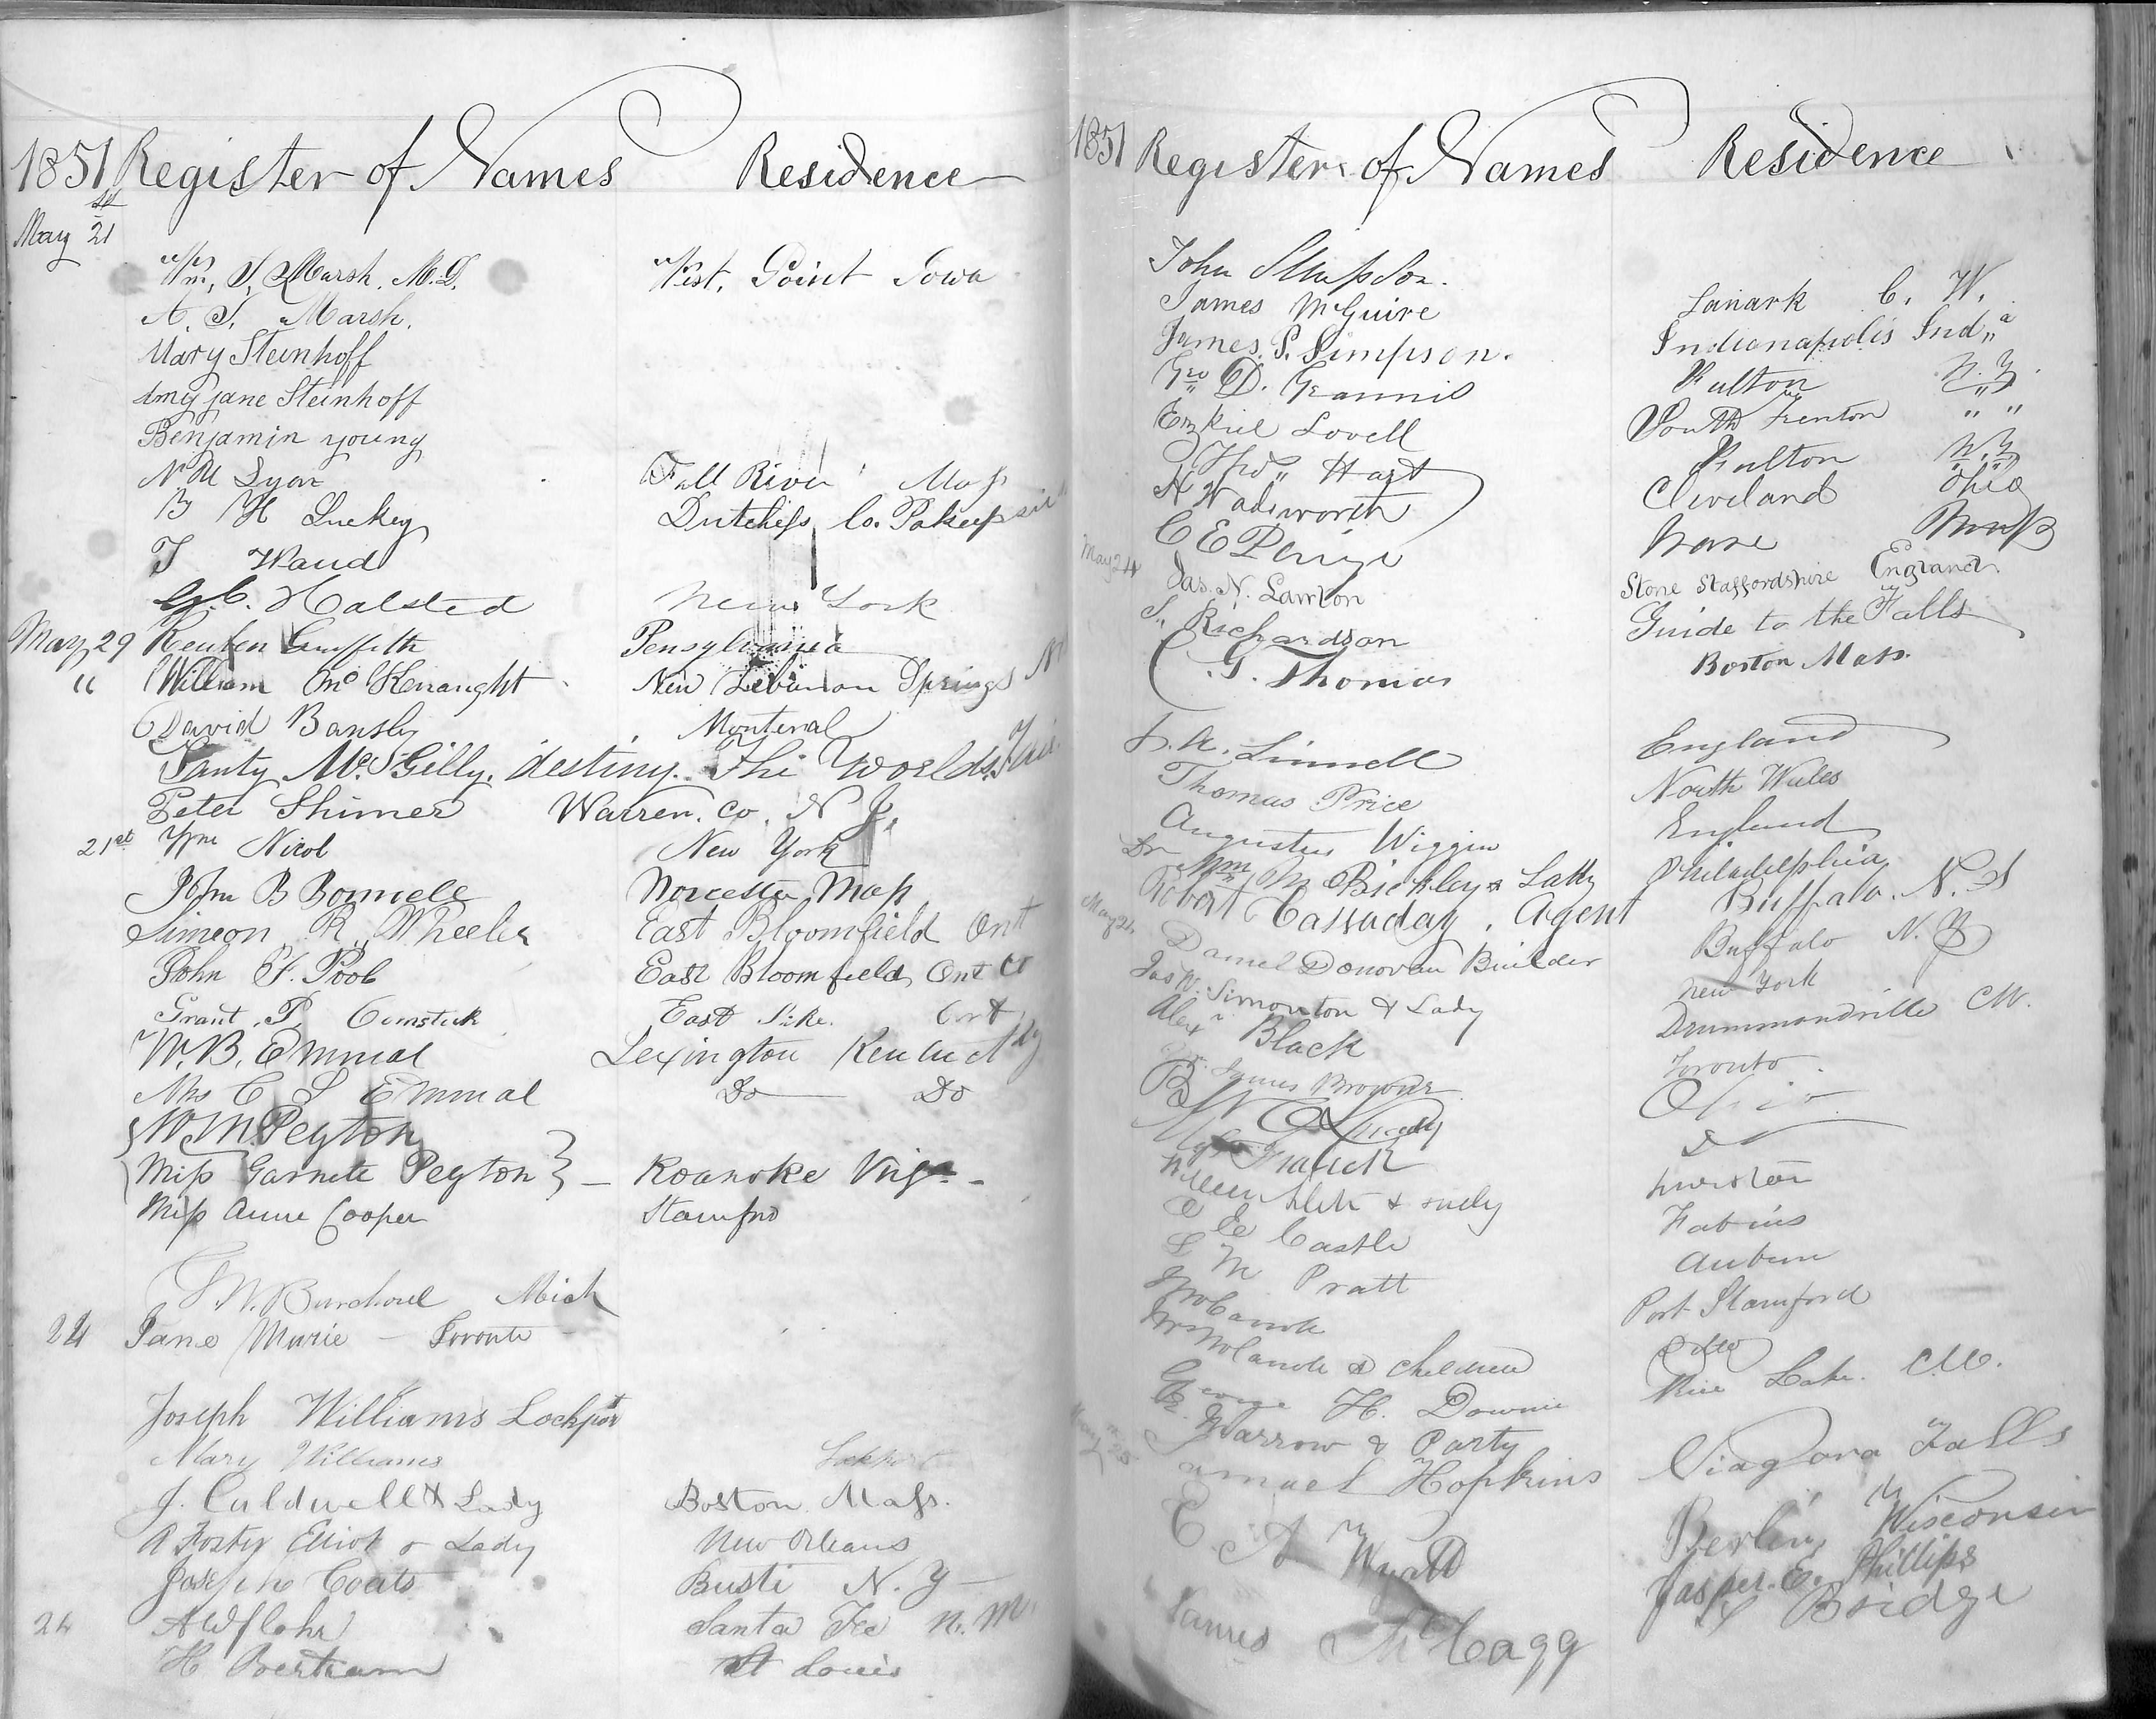 1851 Register of Names Residence
May 21st
Wm. S. Marsh. M.D. West. Point Iowa
A. S. Marsh.
Mary Steinhoff
Amy jane Steinhoff
Benjamin young
N M Lyon Fall River Mass
B H Luckey Dutchess Co. Pokeepsie
T Waud
G. C. Halsted New York
May 29 Reuben Griffith Pensylvania
" William Mc Kenaught New Lebanon Springs
David Bansly Monteral
Santy McGilly. destiny. The Worlds Fair
Peter Shimer Warren. Co. N J.
21st Wm Nicol New York
John B Bonnell Worcester Mass
Simeon R. Wheeler East Bloomfield Ont
John F. Poob East Bloomfield Ont Co
Grant P. Comstock East
W. B. Emmal Lexington Kentucky
Mrs C S Emmal Do Do
W M Peyton
Miss Garnett Peyton } - Roanoke Virga -
Miss Anne Cooper Stamford
Mich
24 Jane Murie - Toronto
Joseph Williams Lockport
Mary Williams Lockport
J. Caldwell & Lady Boston Mass.
A Foster Elliot & Lady New Orleans
Joseph Coats Busti N. Y
A W Flohr Santa Fee N. M.
H Bertram St Louis
1851 Register of Names Residence
John Simpson. Lanark C. W.
James McGuire Indianapolis Inda
James. P. Simpson. Fulton N. Y.
Geo D. Grannis South Trenton " "
Ezkiel Lovell Fulton N. Y
Hart Cleveland Ohio
A Wadsworth Mass
C E
May 24 Jas. N. Lawton Stone Staffordshire England
S. Richardson Guide to the Falls
G. Thomas Boston Mass.
J. A. Linnell England
Thomas Price North Wales
Augustus Wiggin England
Dr Wm M Bickley & Lady Philadelphia
Robert Cassaday. Agent Buffalo. N. Y
Daniel Donovan Builder Buffalo N. Y
Jas W. Simonton & Lady New York
Alexr Black Drummondville CW.
James Browne Toronto
Ohio
& Lady
E E Castle Fabius
L M Pratt Auburn
Port Stamford
& Children Ditto
George H. Downie Rice Lake. CW.
Farrow & Party
Samuel Hopkins Niagara Falls
E. A Wyatt Berlin Wisconsin
Jasper. E. Phillips
James McCagg Bridge